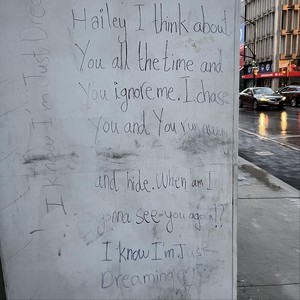 Hailey I think about
You all the time and
You ignore me. I chase
You and You run away
and hide. When am I
gonna see you again!?
I know I'm Just
Dreaming
I know I'm Just